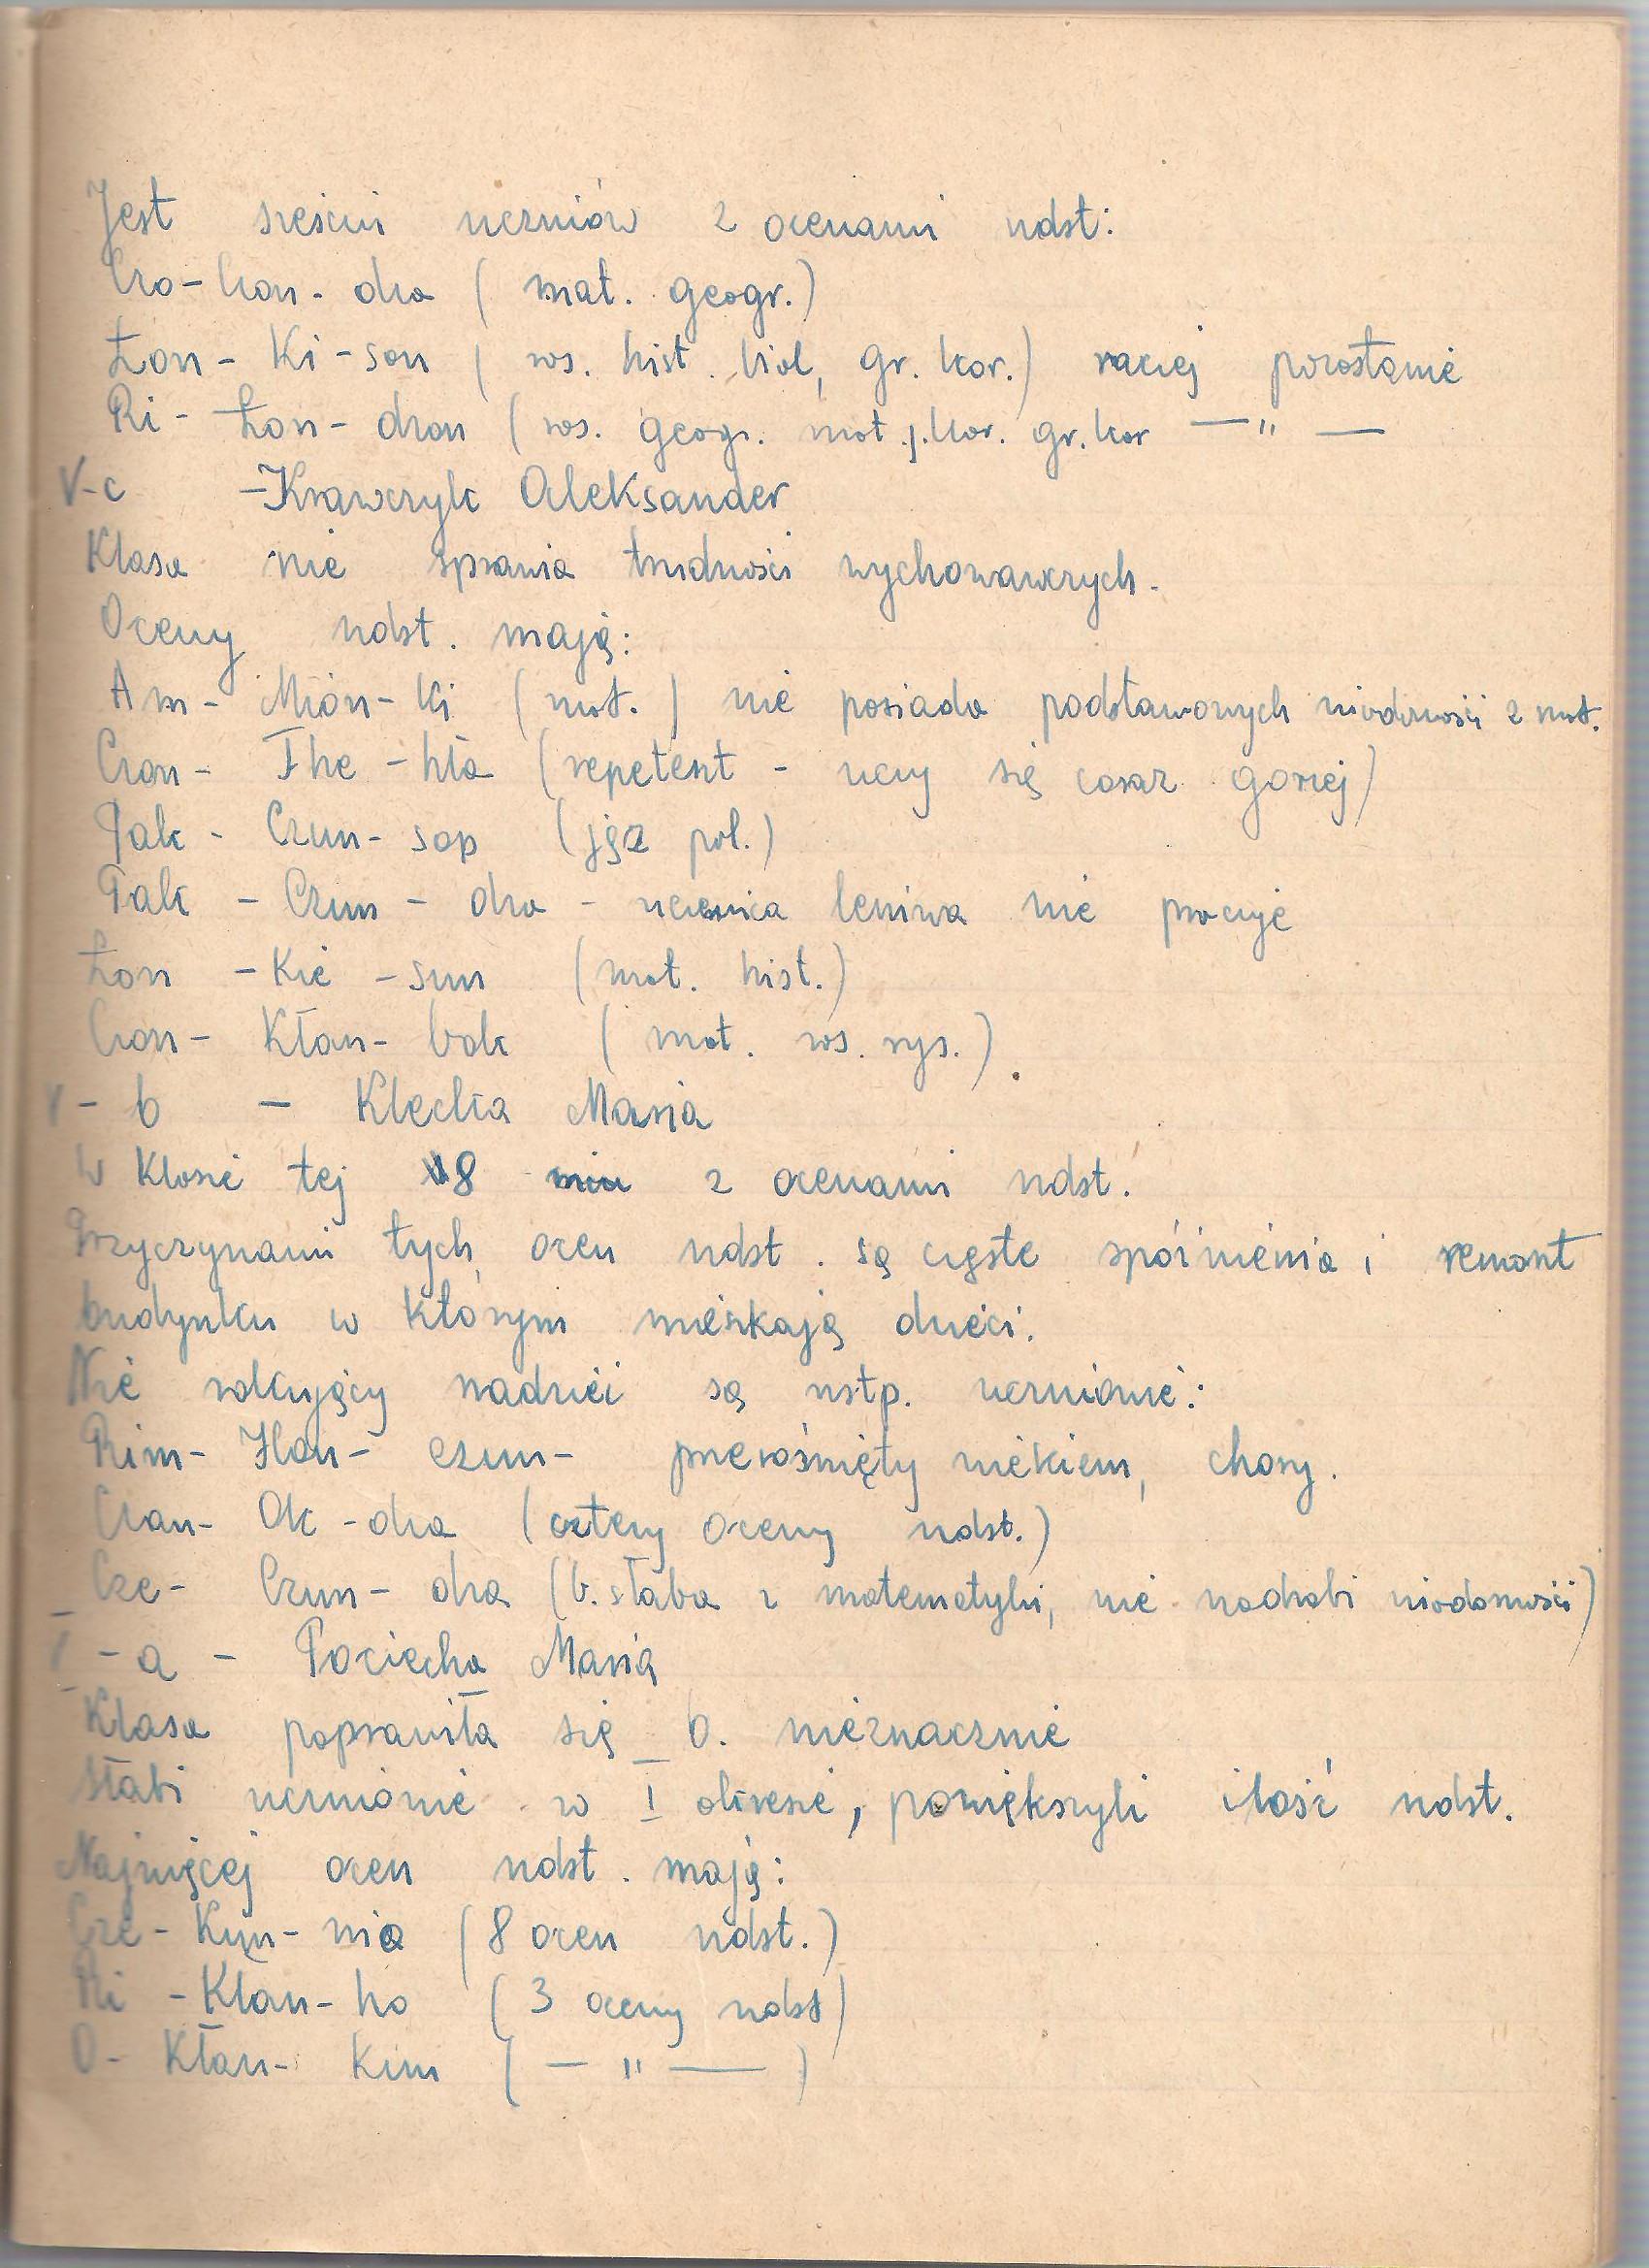 Jest sześciu uczniów z ocenami ndst:
Czo-Czan-dza (mat. geogr.)
Łon - Ki - son (ros. hist. biol, gr. kor.) raczej pozostanie
Ri - Łon - dzon (ros. geogr. mat. j. kor. gr. kor — " —
V-c - Krawczyk Aleksander
Klasa nie sprawia trudności wychowawczych.
Oceny ndst. mają:
Am - Mión - Ki (mat.) nie posiada podstawowych wiadomości z mat.
Czan - The - hła (repetent - uczy się coraz gorzej)
Pak - Czun - sop (jęz pol.)
Pak - Czun - dza - uczenica leniwa nie pracuje
Łon - Kie - sun (mat. hist.)
Czon - Kłan - bok (mat. ros. rys.)
V - b - Klecha Maria
W klasie tej 8 z ocenami ndst.
Przyczynami tych ocen ndst. są częste spóźnienia i remont
budynku w którym mieszkają dzieci.
Nie rokujący nadzieí są nstp. uczniowie:
Rim - Han - czun - przerośnięty wiekiem, chory.
Czan - Ok - dza (cztery oceny ndst.)
Cze - Czun - dza (b. słaba z matematyki, nie nadrobi wiadomości)
V - a - Pociecha Maria
Klasa poprawiła się b. nieznacznie
Słabi uczniowie w I okresie, powiększyli ilość ndst.
Najwięcej ocen ndst. mają:
Cze - Kyn - nia (8 ocen ndst.)
Ri - Kłan - ho (3 oceny ndst)
O - Kłan - Kim ( — " — )